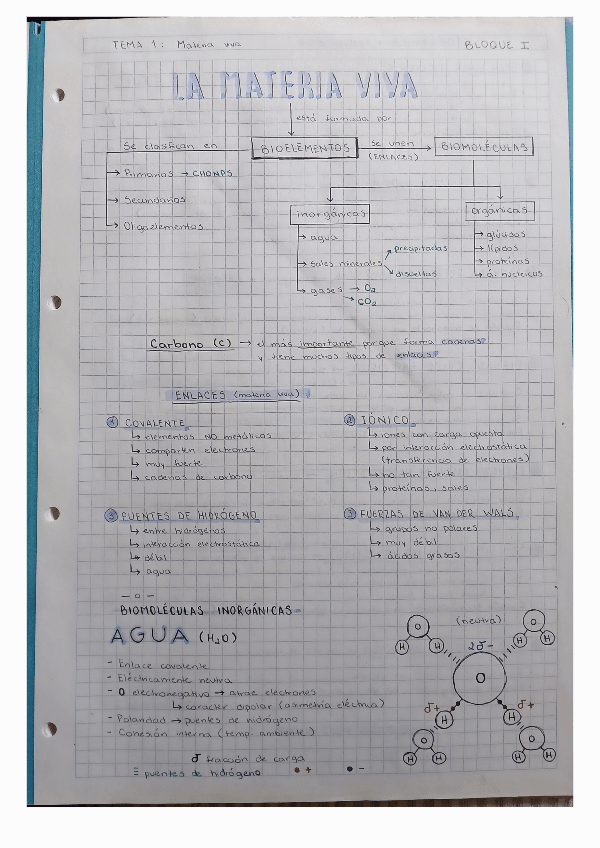 TEMA 1: Materia viva
BLOQUE I
LA MATERIA VIVA
está formada por
Se clasifican en
BIOELEMENTOS
se unen
(ENLACES)
BIOMOLÉCULAS
Primarios → CHONPS
Secundarios
Oligoelementos
inorgánicas
→ agua
→ sales minerales
precipitadas
disueltas
→ gases → O₂
→ CO₂
orgánicas
→ glúcidos
→ lípidos
→ proteínas
→ á. nucleicos
Carbono (C) → el más importante porque forma cadenas
y tiene muchos tipos de enlaces
ENLACES (materia viva)
① COVALENTE
↳ elementos NO metálicos
↳ comparten electrones
↳ muy fuerte
↳ cadenas de carbono
② IÓNICO
↳ iones con carga opuesta
↳ por interacción electrostática
(transferencia de electrones)
↳ no tan fuerte
↳ proteínas, sales
③ PUENTES DE HIDRÓGENO
↳ entre hidrógenos
↳ interacción electrostática
↳ débil
↳ agua
FUERZAS DE VAN DER WALS
↳ grupos no polares
↳ muy débil
↳ ácidos grasos
— o —
BIOMOLÉCULAS INORGÁNICAS -
AGUA (H₂O)
- Enlace covalente
- Eléctricamente neutra
- O electronegativo → atrae electrones
↳ carácter dipolar (asimetría eléctrica)
- Polaridad → puentes de hidrógeno
- Cohesión interna (temp. ambiente)
δ fracción de carga
Ξ puentes de hidrógeno
• +
• -
(neutra)
O
H
H
O
H
H
2δ-
O
δ+
H
δ+
H
O
H
H
O
H
H